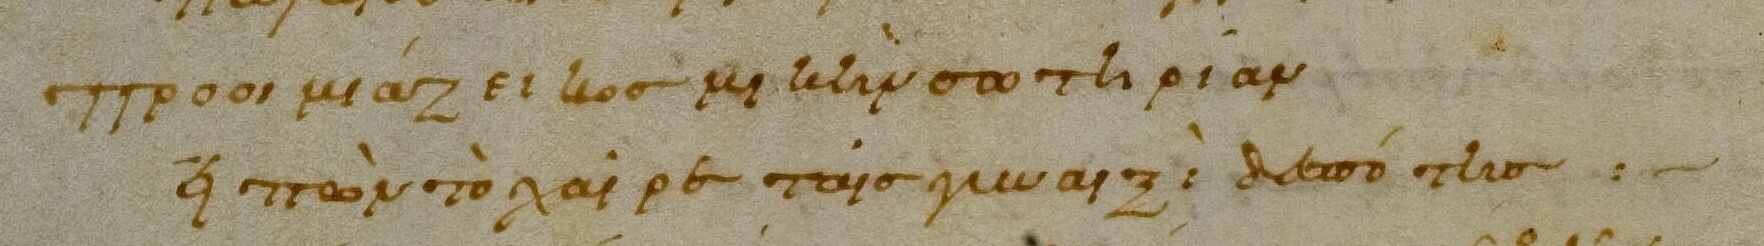 προοιμιάζει κοσμικὴν σωτηρίαν
εἰπὼν τὸ χαίρε ταῖς γυναιξὶ δεσπότης :~